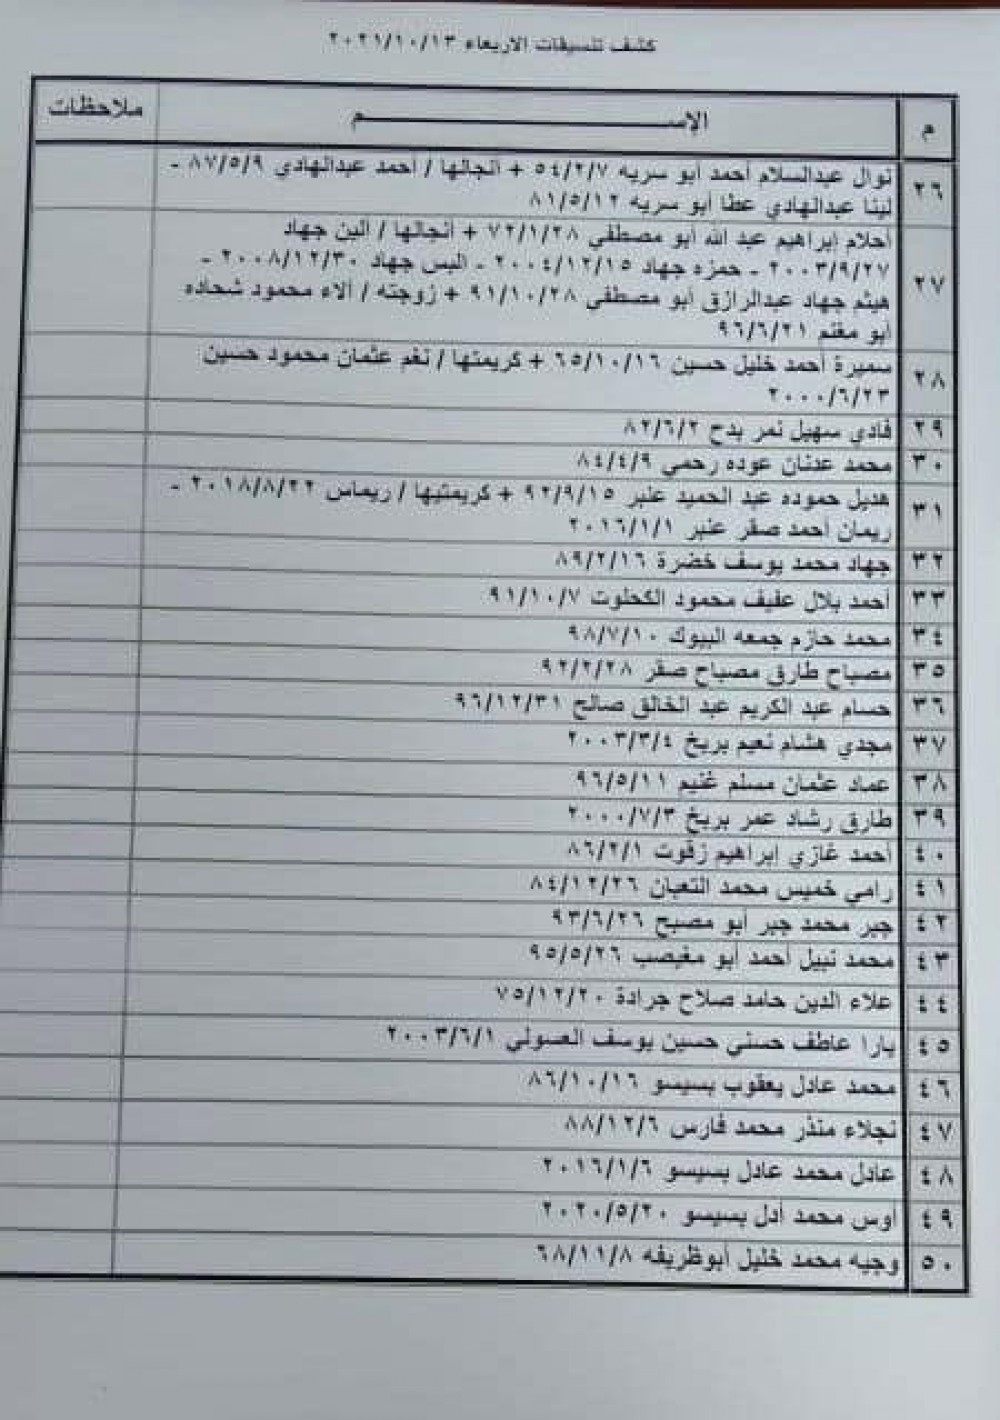 كشف تنسيقات الاربعاء ٢٠٢١/١٠/١٣
م الإســـــــم ملاحظات
٢٦ نوال عبدالسلام أحمد أبو سريه ٥٤/٢/٧ + أنجالها / أحمد عبدالهادي ٨٧/٥/٩ -
لينا عبدالهادي عطا أبو سريه ٨١/٥/١٢
٢٧ أحلام إبراهيم عبد الله أبو مصطفي ٧٢/١/٢٨ + أنجالها / ألين جهاد
٢٠٠٣/٩/٢٧ - حمزه جهاد ٢٠٠٤/١٢/١٥ - اليس جهاد ٢٠٠٨/١٢/٣٠ -
هيثم جهاد عبدالرازق أبو مصطفي ٩١/١٠/٢٨ + زوجته / ألاء محمود شحاده
أبو مغنم ٩٦/٦/٢١
٢٨ سميرة أحمد خليل حسين ٦٥/١٠/١٦ + كريمتها / نغم عثمان محمود حسين
٢٠٠٠/٦/٢٣
٢٩ فادي سهيل نمر بدح ٨٢/٦/٢
٣٠ محمد عدنان عوده رحمي ٨٤/٤/٩
٣١ هديل حموده عبد الحميد عنبر ٩٢/٩/١٥ + كريمتيها / ريماس ٢٠١٨/٨/٢٢ -
ريمان أحمد صقر عنبر ٢٠١٦/١/١
٣٢ جهاد محمد يوسف خضرة ٨٩/٢/١٦
٣٣ أحمد بلال عفيف محمود الكحلوت ٩١/١٠/٧
٣٤ محمد حازم جمعه البيوك ٩٨/٧/١٠
٣٥ مصباح طارق مصباح صقر ٩٢/٢/٢٨
٣٦ حسام عبد الكريم عبد الخالق صالح ٩٦/١٢/٣١
٣٧ مجدي هشام نعيم بريخ ٢٠٠٣/٣/٤
٣٨ عماد عثمان مسلم غنيم ٩٦/٥/١١
٣٩ طارق رشاد عمر بريخ ٢٠٠٠/٧/٣
٤٠ أحمد غازي إبراهيم زقوت ٨٦/٢/١
٤١ رامي خميس محمد التعبان ٨٤/١٢/٢٦
٤٢ جبر محمد جبر أبو مصبح ٩٣/٦/٢٦
٤٣ محمد نبيل أحمد أبو مغيصب ٩٥/٥/٢٦
٤٤ علاء الدين حامد صلاح جرادة ٧٥/١٢/٢٠
٤٥ يارا عاطف حسني حسين يوسف العسولي ٢٠٠٣/٦/١
٤٦ محمد عادل يعقوب بسيسو ٨٦/١٠/١٦
٤٧ نجلاء منذر محمد فارس ٨٨/١٢/٦
٤٨ عادل محمد عادل بسيسو ٢٠١٦/١/٦
٤٩ أوس محمد أدل بسيسو ٢٠٢٠/٥/٢٠
٥٠ وجيه محمد خليل أبوظريفه ٦٨/١١/٨